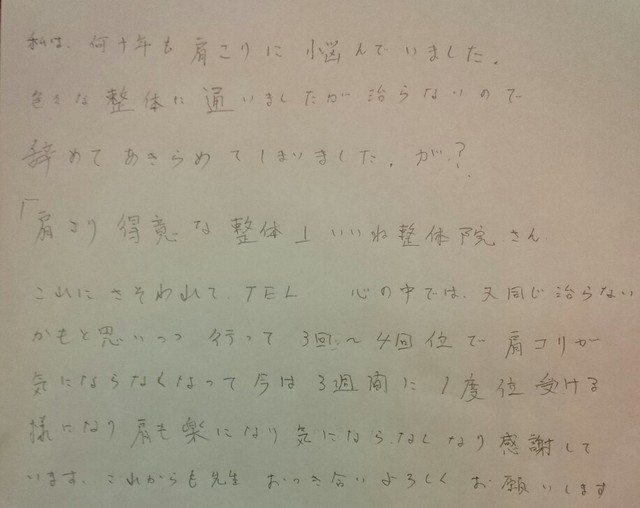 私は、何十年も肩こりに悩んでいました。
色々な整体に通いましたが治らないので
辞めてあきらめてしまいました。が?
「肩こり得意な整体」いいね整体院さん
これにさそわれて、TEL 心の中では、又同じ治らない
かもと思いつつ 行って 3回~4回位で肩コリが
気にならなくなって今は3週間に1度位受ける
様になり肩も楽になり気にならなくなり感謝して
います。これからも先生おつき合いよろしくお願いします